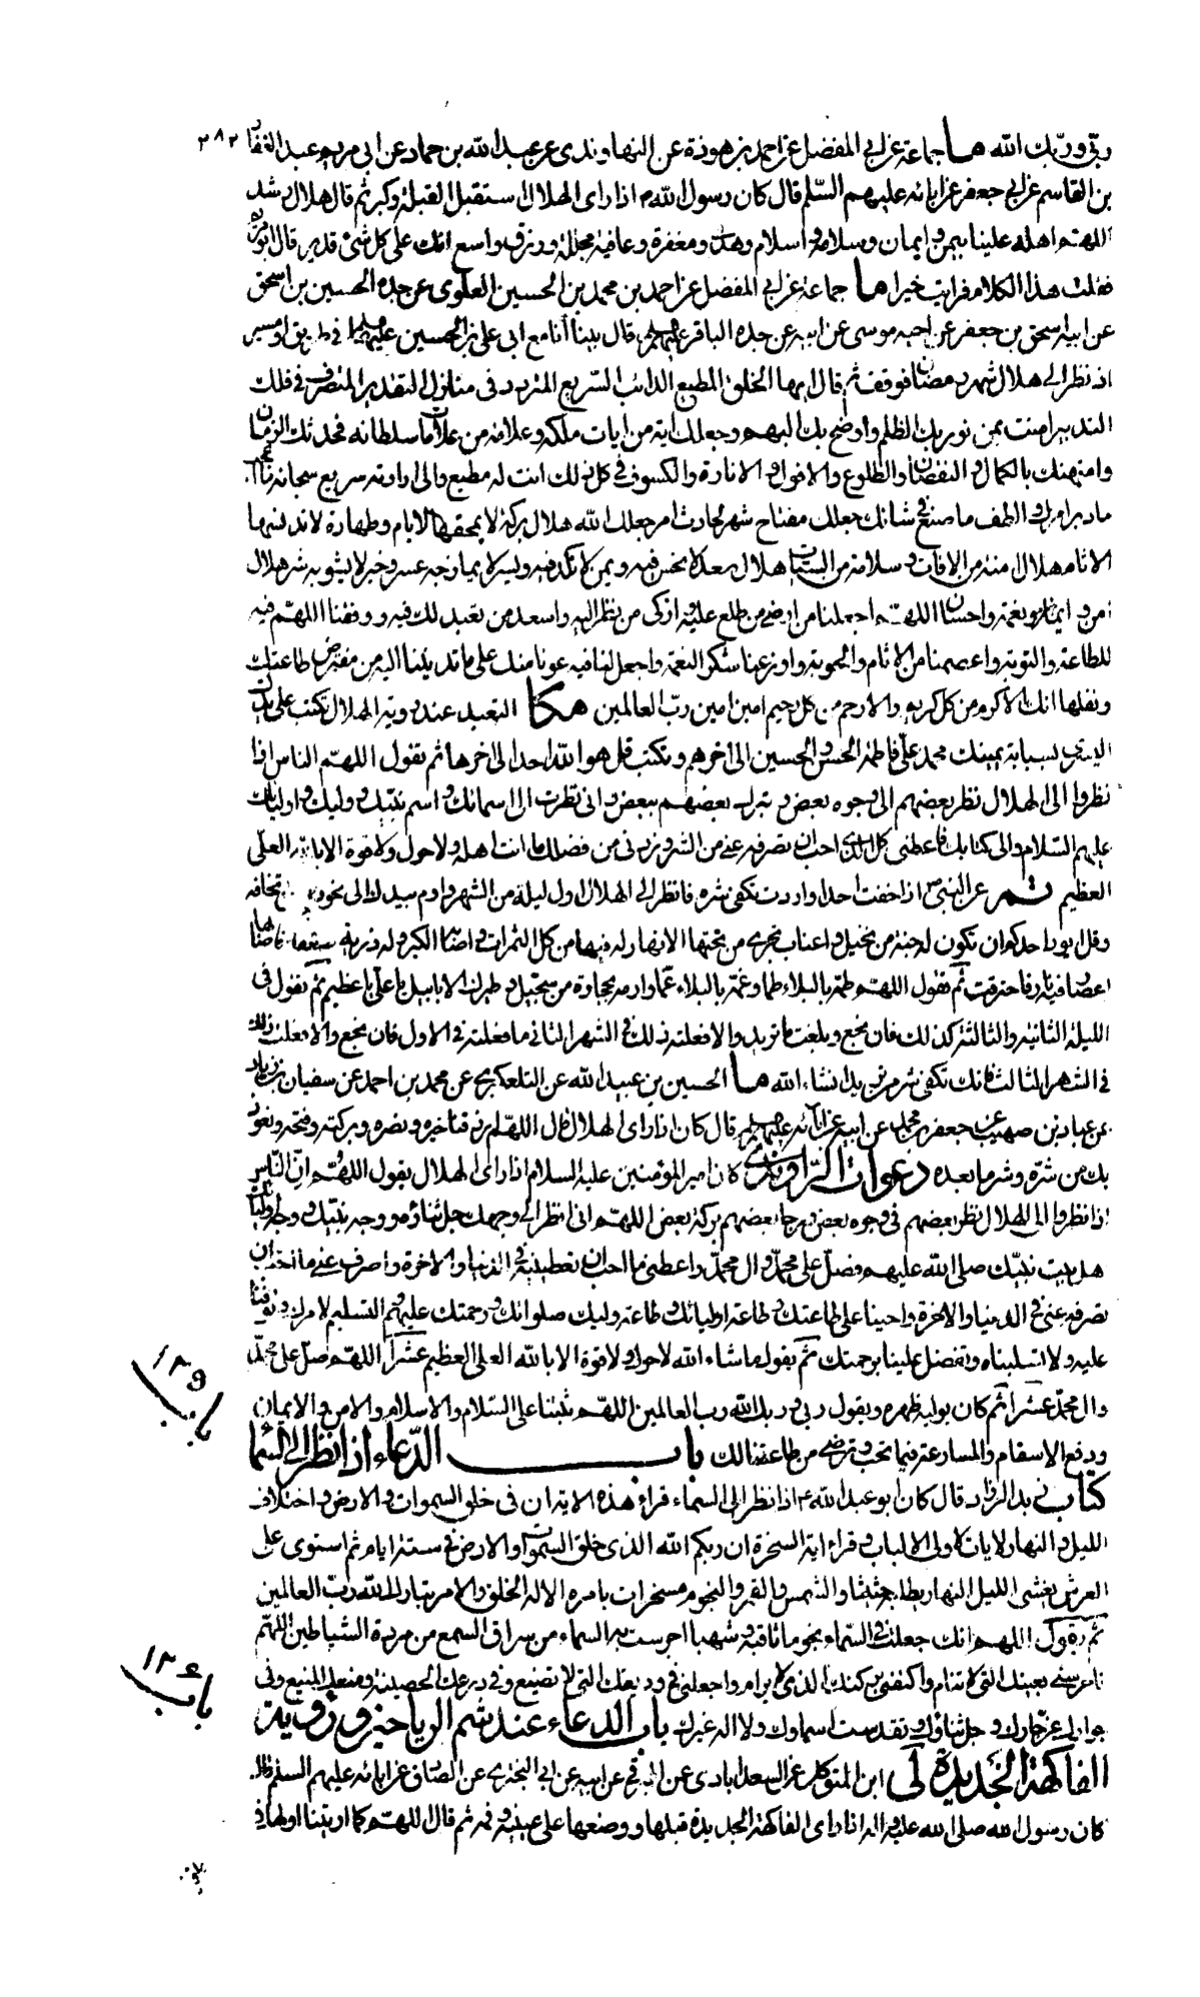 ربي وربك الله ما جماعة عن ابي المفضل عن احمد بن هوذة عن النهاوندي عن عبد الله بن حماد عن ابي مريم عبد الغفار ٢٨٢
بن القاسم عن ابي جعفر عن ابائه عليهم السلم قال كان رسول الله ص اذا راى الهلال استقبل القبلة وكبر ثم قال هلال رشد
اللهم اهله علينا بيمن وايمان وسلامة واسلام وهدى ومغفرة وعافية مجللة ورزق واسع انك على كل شئ قدير قال ابو مريم
فقلت هذا الكلام فرايت خيرا ما جماعة عن ابي المفضل عن احمد بن محمد بن الحسين العلوي عن جده الحسين بن اسحق
عن ابيه اسحق بن جعفر عن اخيه موسى عن ابيه عن جده الباقر عليهم السلم قال بينا انا مع ابي علي بن الحسين عليهما السلم في طريق او مسير
اذ نظر الى هلال شهر رمضان فوقف ثم قال ايها الخلق المطيع الدائب السريع المتردد في منازل التقدير المتصرف في فلك
التدبير امنت بمن نور بك الظلم واوضح بك البهم وجعلك اية من ايات ملكه وعلامة من علامات سلطانه فحد بك الزمان
وامتهنك بالكمال والنقصان والطلوع والافول والانارة والكسوف في كل ذلك انت له مطيع والى ارادته سريع سبحانه ما اعجب
ما دبر امرك والطف ما صنع في شانك جعلك مفتاح شهر لحادث امر جعلك الله هلال بركة لا يمحقها الايام وطهارة لا تدنسها
الاثام هلال امنة من الافات وسلامة من السيئات هلال سعد لا نحس فيه ويمن لا نكد فيه ويسر لا يمازجه عسر وخير لا يشوبه شر هلال
امن وايمان ونعمة واحسان اللهم اجعلنا من ارضى من طلع عليه وازكى من نظر اليه واسعد من تعبد لك فيه ووفقنا اللهم فيه
للطاعة والتوبة واعصمنا من الاثام والحوبة واوزعنا شكر النعمة واجعل لنا فيه عونا منك على ما تدبتنا اليه من مفترض طاعتك
ونفلها انك الاكرم من كل كريم والارحم من كل رحيم امين امين رب العالمين مكا التعبد عند روية الهلال تكتب على يدك
اليسرى بسبابة يمينك محمد علي فاطمة الحسن والحسين الى اخرهم وتكتب قل هو الله احد الى اخرها ثم تقول اللهم الناس اذا
نظروا الى الهلال نظر بعضهم الى وجوه بعض وتبرك بعضهم ببعض واني نظرت الى اسمائك واسم نبيك ووليك واوليائك
عليهم السلام والى كتابك فاعطني كل الذي احب ان تصرفه عني من الشر وزدني من فضلك ما انت اهله ولا حول ولا قوة الا بالله العلي
العظيم عن النبي ص اذا خفت احدا واردت تكفى شره فانظر الى الهلال اول ليلة من الشهر واوم بيدك الى نحو تخافه
وقل ايود احدكم ان تكون له جنة من نخيل واعناب تجري من تحتها الانهار له فيها من كل الثمرات واصابه الكبر وله ذرية ضعفاء فاصابها
اعصار فيه نار فاحترقت ثم تقول اللهم طمه بالبلاء طما وغمه بالبلاء غما وارمه بحجارة من سجيل وطيرك الابابيل يا علي يا عظيم ثم تقول في
الليلة الثانية والثالثة كذلك فان نجع وبلغت ما تريد والا فعلته ذلك في الشهر الثاني ما فعلته في الاول فان نجع والا فعلت ذلك
في الشهر الثالث فانك تكفى شره من تريد انشاء الله ما الحسين بن عبيد الله عن التلعكبري عن محمد بن احمد عن سفيان بن زياد
عن عباد بن صهيب عن جعفر بن محمد عن ابيه عن ابائه عليهم السلم قال كان اذا راى الهلال قال اللهم ارزقنا خيره ونصره وبركته وفتحه ونعوذ
بك من شره وشر ما بعده دعوات الراوندي كان امير المؤمنين عليه السلام اذا راى الهلال يقول اللهم ان الناس
اذا نظروا الى الهلال نظر بعضهم في وجوه بعض ويرجا بعضهم بركة بعض اللهم اني انظر الى وجهك جل ثناؤه ووجه نبيك ووجه اوليائك
اهل بيت نبيك صلى الله عليهم فصل على محمد وال محمد واعطني ما احب ان تعطينيه في الدنيا والاخرة واصرف عني ما احب ان
تصرفه عني في الدنيا والاخرة واحينا على طاعتك وطاعة اوليائك وطاعة وليك صلواتك ورحمتك عليهم والتسليم لامرك وتوفنا
عليه ولا تسلبناه وتفضل علينا برحمتك ثم يقول ما شاء الله لا حول ولا قوة الا بالله العلي العظيم عشرا اللهم صل على محمد
وال محمد عشرا ثم كان يوليه ظهره ويقول ربي وربك الله رب العالمين اللهم ثبتنا على السلام والاسلام والامن والايمان
ودفع الاسقام والمسارعة فيما تحب وترضى من طاعتنا لك باب الدعاء اذا نظر الى السما
باب ١٢٥
كتاب زيد الزراد قال كان ابو عبد الله ع اذا نظر الى السماء قرا هذه الاية ان في خلق السموات والارض واختلاف
الليل والنهار لايات لاولي الالباب وقراء اية السخرة ان ربكم الله الذي خلق السموات والارض في ستة ايام ثم استوى على
العرش يغشي الليل النهار يطلبه حثيثا والشمس والقمر والنجوم مسخرات بامره الا له الخلق والامر تبارك الله رب العالمين
ثم يقول اللهم انك جعلت في السماء نجوما ثاقبة وشهبا احرست بها السماء من سراق السمع من مردة الشياطين اللهم
فاحرسني بعينك التي لا تنام واكنفني بركنك الذي لا يرام واجعلني في وديعتك التي لا تضيع وفي درعك الحصينة ومنعك المنيع وفي
جوارك عز جارك وجل ثناؤك وتقدست اسماؤك ولا اله غيرك باب الدعاء عند شم الرياحين ورؤية
باب ١٢٦
الفاكهة الجديدة لي ابن المتوكل عن السعدابادي عن البرقي عن ابيه عن ابي البختري عن الصادق عن ابائه عليهم السلم قال
كان رسول الله صلى الله عليه واله اذا راى الفاكهة الجديدة قبلها ووضعها على عينيه وفمه ثم قال اللهم كما اريتنا اولها في